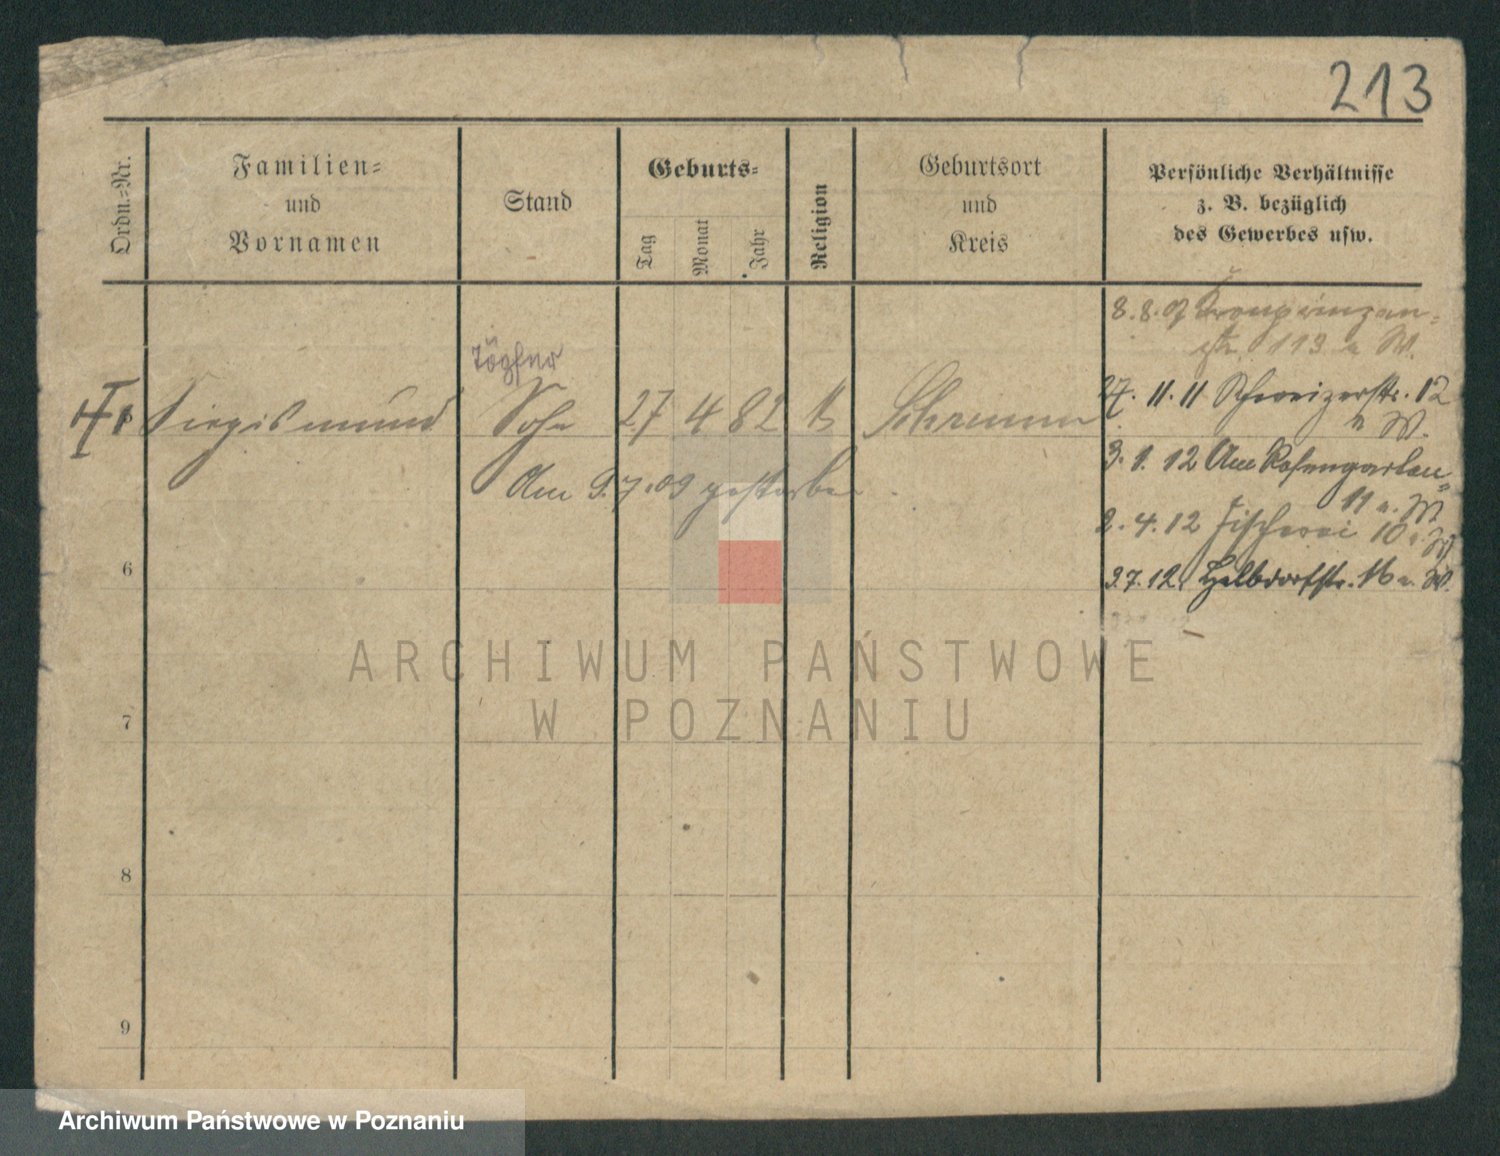 213
Ordn.-Nr.
Familien-
und
Vornamen
Stand
Geburts-
Tag
Monat
Jahr
Religion
Geburtsort
und
Kreis
Persönliche Verhältnisse
z. B. bezüglich
des Gewerbes usw.
8.8.07 Kronprinzen-
str. 113 a W.
Töpfer
Siegismund Sohn 27 4 82 Schrimm
27.11.11 Schweizerstr. 12
a W.
Am 9.7.09 gestorben.
3.1.12 Am Rosengarten-
11 a. W
2.4.12 Fischerei 10 a. W
6
9.7.12. Halbdorfstr. 16 a. W.
ARCHIWUM PAŃSTWOWE
W POZNANIU
7
8
9
Archiwum Państwowe w Poznaniu